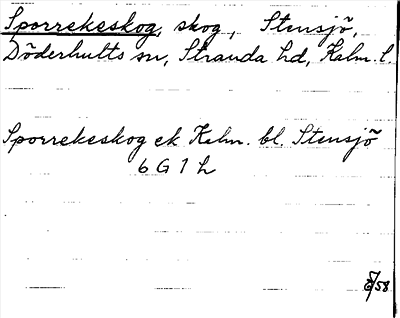 Sporrekeskog, skog, Stensjö,
Döderhults sn, Stranda hd, Kalm. l.
Sporrekeskog ek Kalm. bl. Stensjö
6 G 1 h
/58